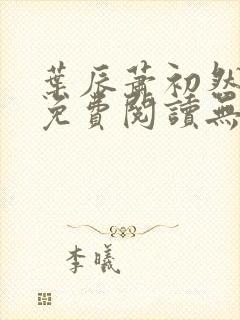 葉辰蕭初然
免費閱讀無
李曦